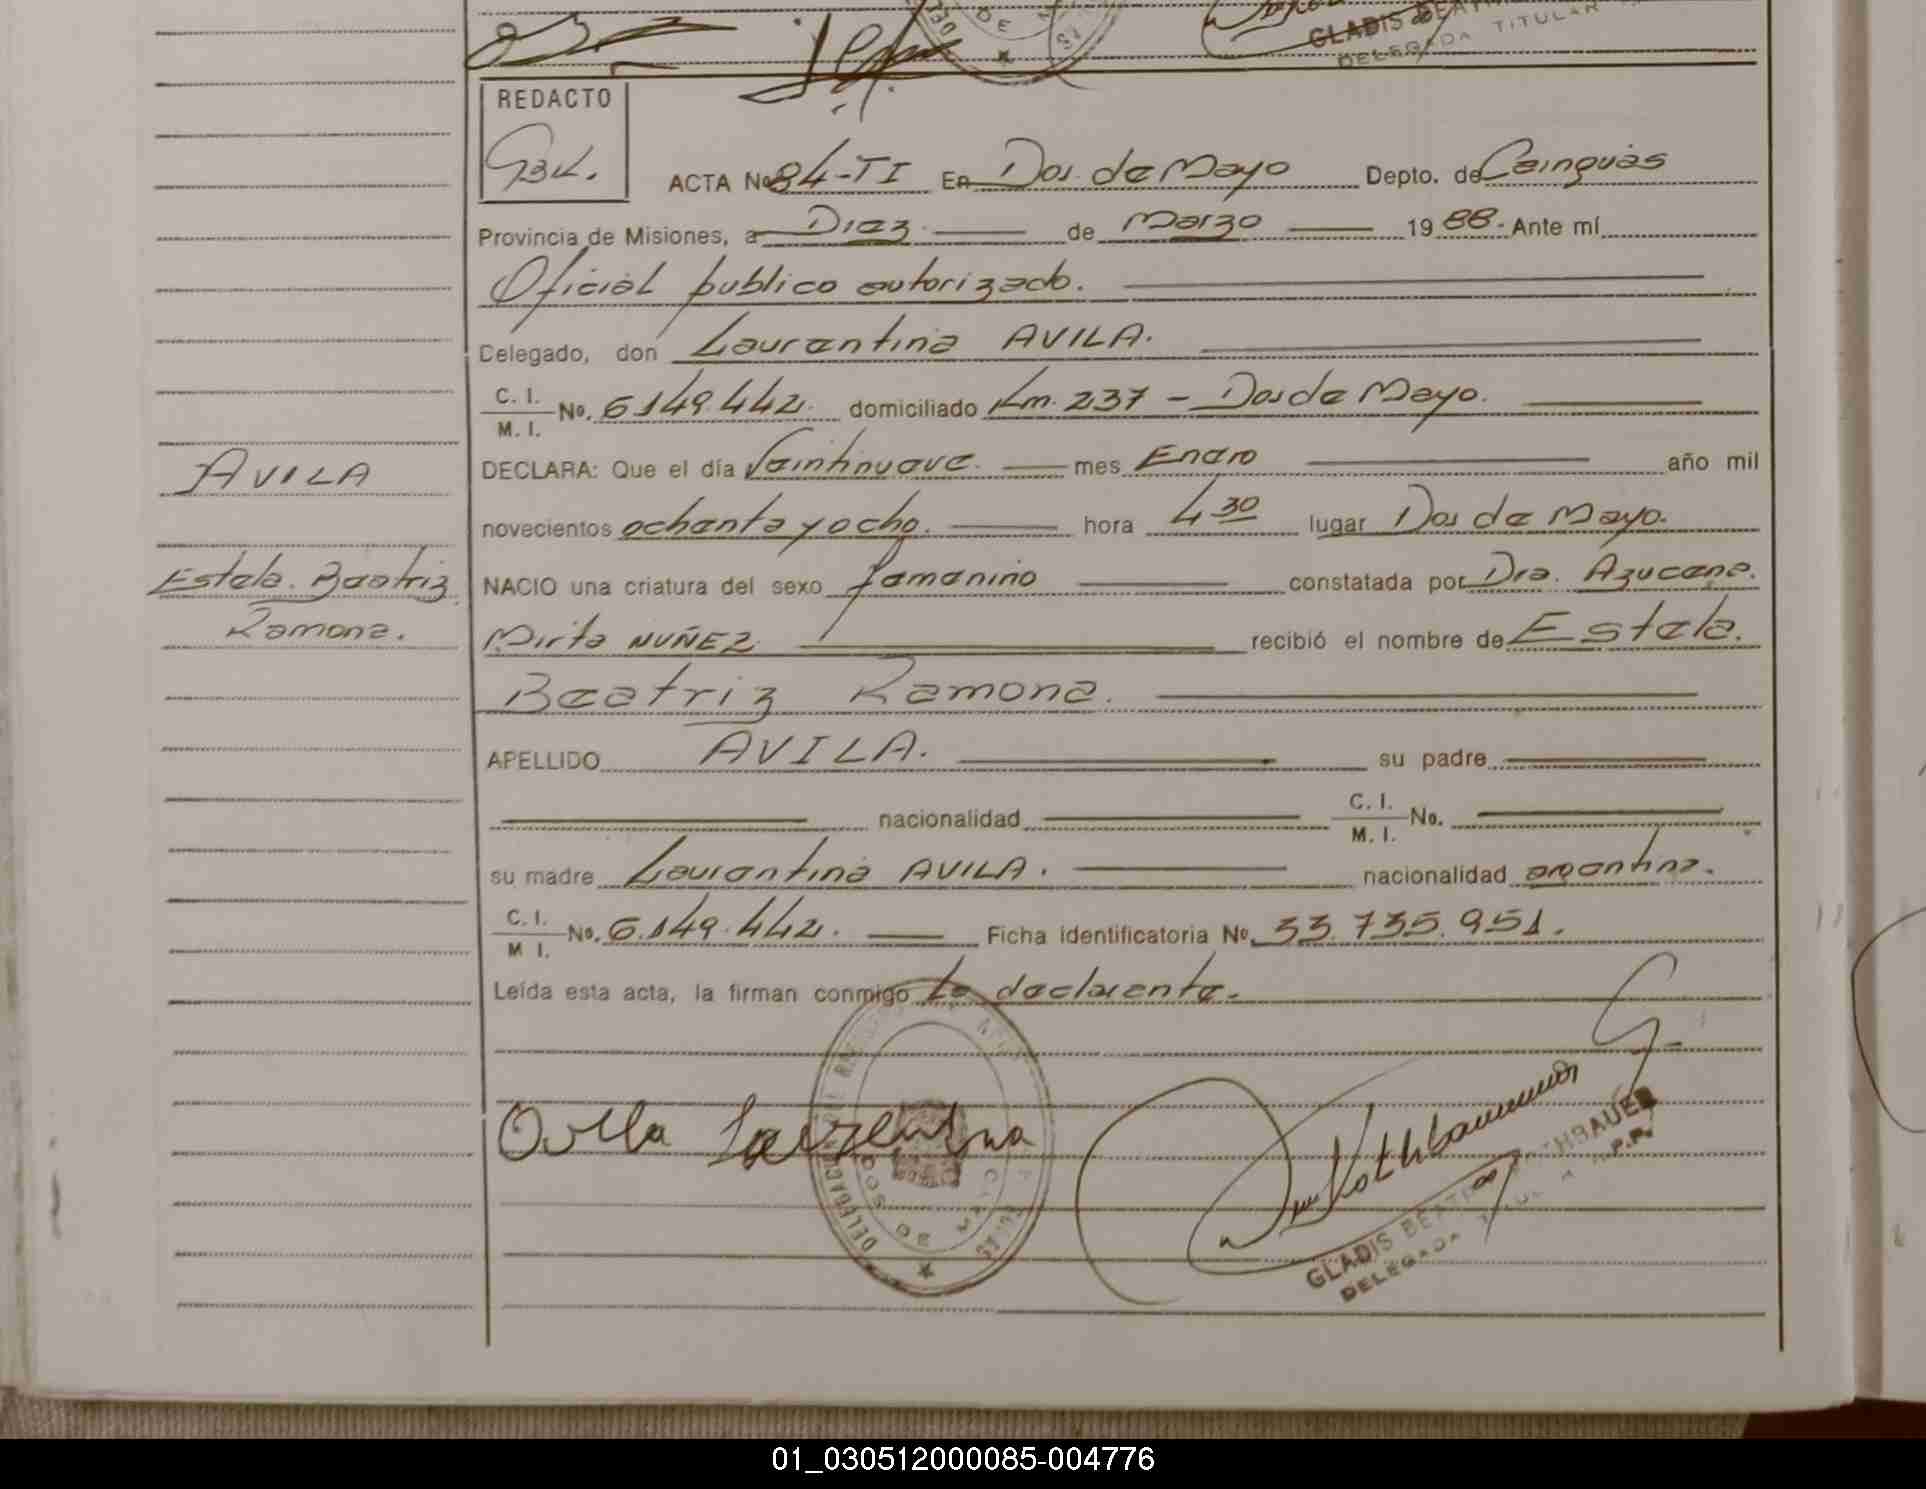 GLADIS BEAT
DELEGADA TITULAR
REDACTO
ACTA No 84-TI En Dos de Mayo Depto. de Cainguás
Provincia de Misiones, a Diez de Marzo 1988.- Ante mí
Oficial publico autorizado.
Delegado, don Laurentina AVILA.
C. I.
M. I. No. 6.149.442. domiciliado Km. 237 - Dos de Mayo.
DECLARA: Que el día Veintinueve mes Enero año mil
AVILA
novecientos ochenta y ocho. hora 4 30 lugar Dos de Mayo.
Estela Beatriz
NACIO una criatura del sexo femenino constatada por Dra. Azucena
Ramona.
Mirta NUÑEZ recibió el nombre de Estela
Beatriz Ramona.
APELLIDO AVILA. su padre
nacionalidad C. I.
M. I. No.
su madre Laurentina AVILA. nacionalidad argentina.
C. I.
M I. No. 6.149.442. Ficha identificatoria No 33.735.951.
Leída esta acta, la firman conmigo La declarente.
Avila Laurentina
DELEGACION
DOS DE MAYO
GLADIS BEATRIZ ROTHBAUER
DELEGADA TITULAR R.P.P.
01_030512000085-004776